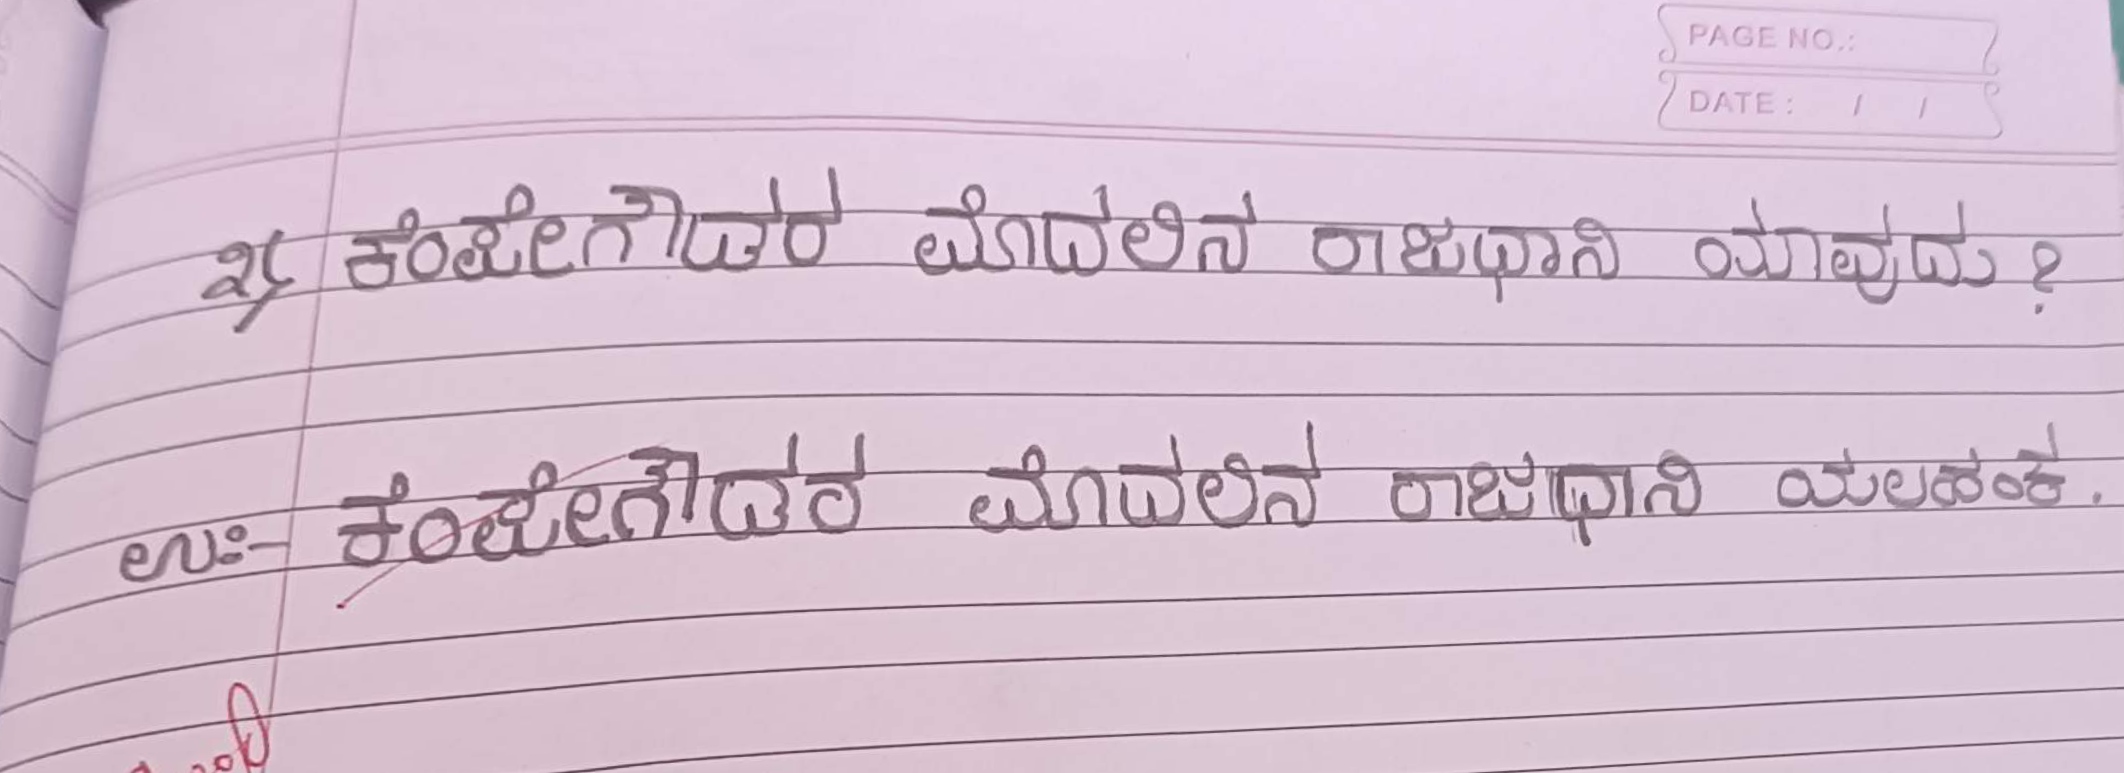 PAGE NO.:
DATE: / /
೨) ಕೆಂಪೇಗೌಡರ ಮೊದಲಿನ ರಾಜಧಾನಿ ಯಾವುದು?
ಉ:- ಕೆಂಪೇಗೌಡರ ಮೊದಲಿನ ರಾಜಧಾನಿ ಯಲಹಂಕ.